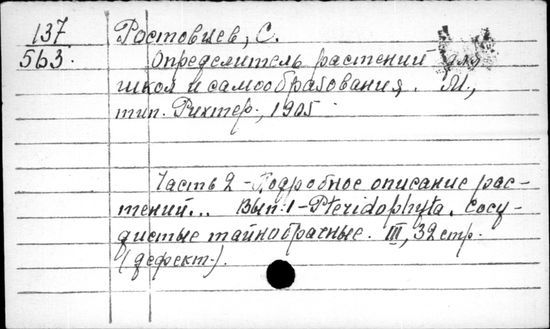 137
563.
Растовцев, С.
Определитель растений для
школ и самообразования. М.,
тип. Рихтер, 1905
Часть 2 - Подробное описание рас-
тений... Вып. 1 - Pteridophyta. Сосу-
дистые тайнобрачные. III, 32 стр.
(дефект.).